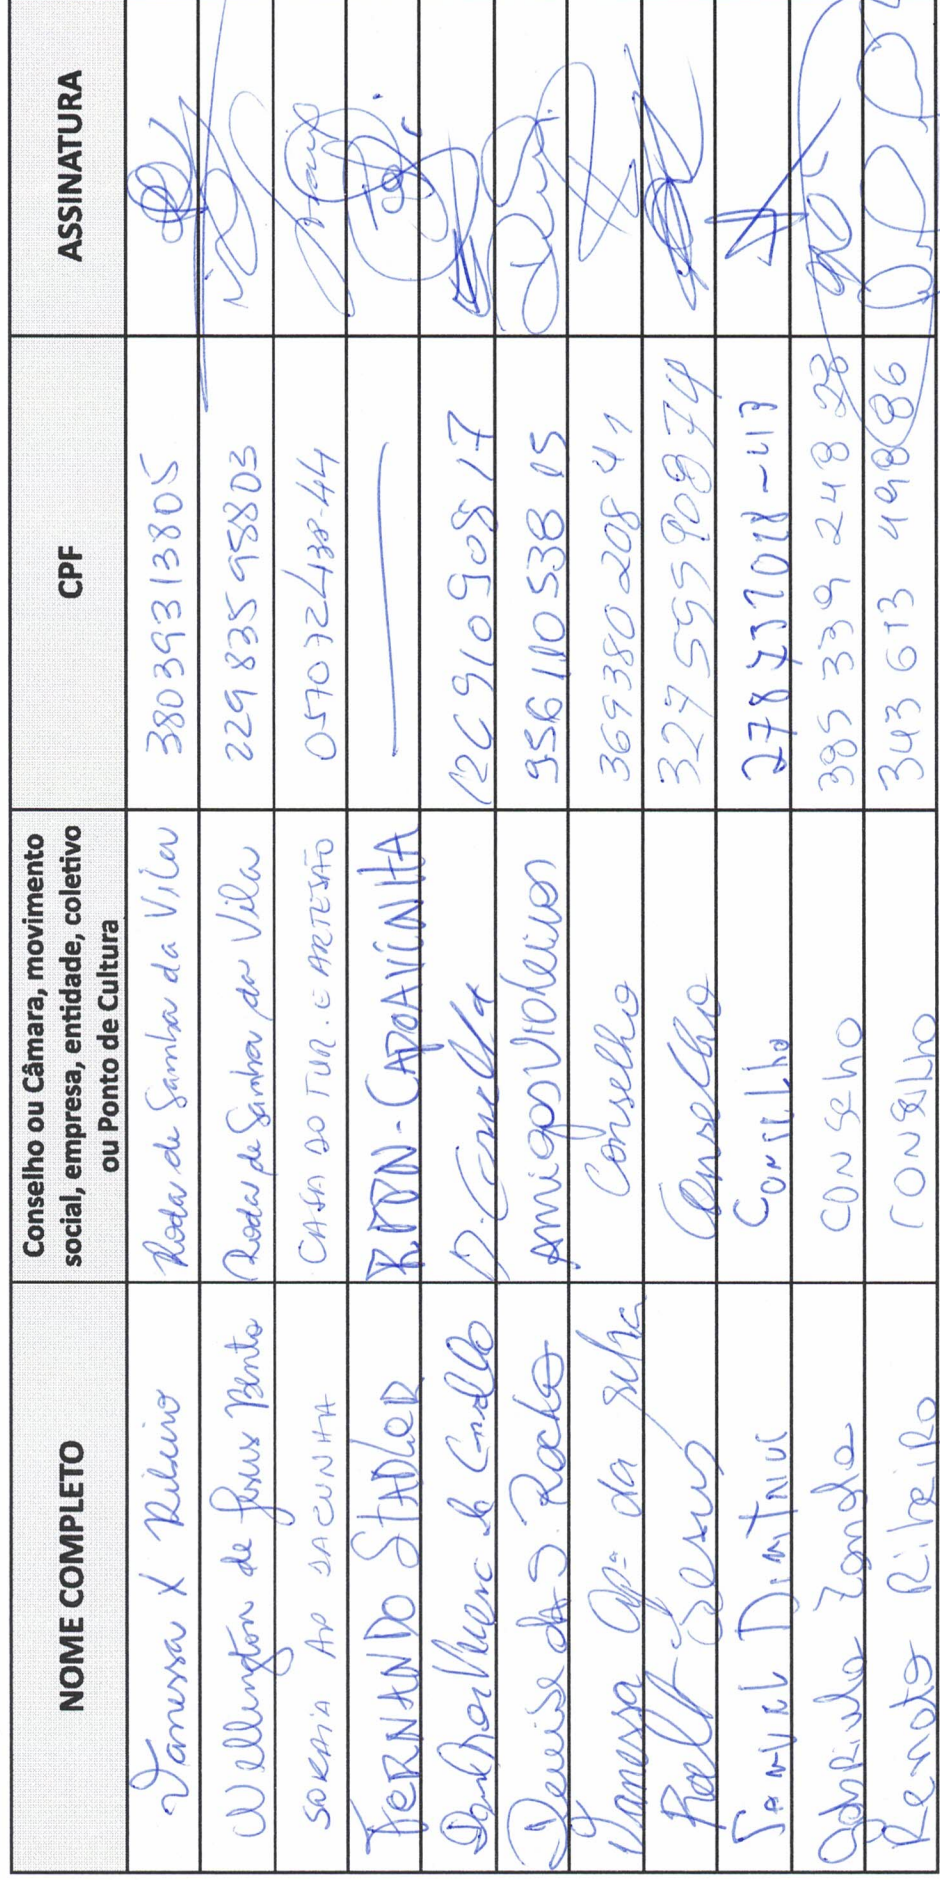 NOME COMPLETO
Conselho ou Câmara, movimento
social, empresa, entidade, coletivo
ou Ponto de Cultura
CPF
ASSINATURA
Vanessa X Ribeiro Roda de Samba da Vila 38039313805
Wellington de Jesus Bento Roda de Samba da Vila 229 835 958803
SORAIA AP DA CUNHA CASA DO TUR. E ARTESÃO 057072438-44
FERNANDO STADLER CAPOAVINHA
126910908 17
Denise da S. Rocha Amigos Violeiros 956 110 538 15
Vanessa Ap. da Silva Conselho 369380208 41
Jesus Conselho 327 595 908 74
SAMUEL Conselho
Gabriela Conselho 385 339 248 23
Renata Ribeiro Conselho 343 613 498 86